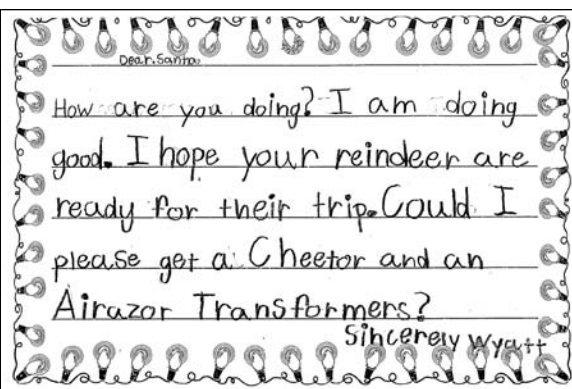 Dear. Santa
How are you doing? I am doing
good. I hope your reindeer are
ready for their trip. Could I
please get a Cheetor and an
Airazor Transformers?
Sincerely Wyatt